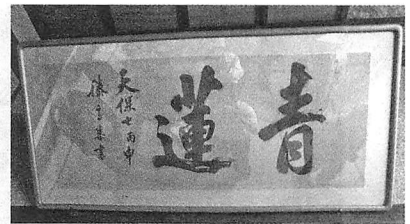 青蓮
天保七丙申